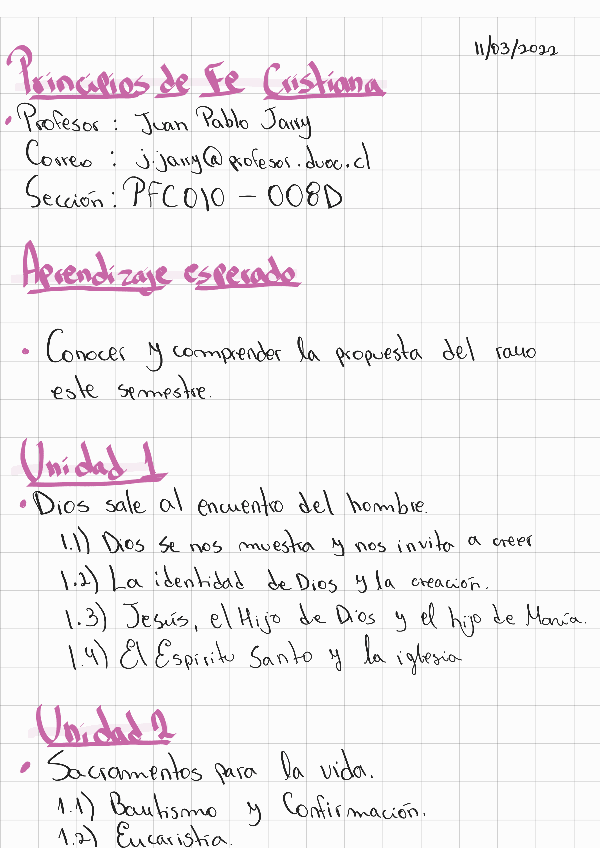 11/03/2022
Principios de Fe Cristiana
• Profesor : Juan Pablo Jarry
Correo : j.jarry@profesor.duoc.cl
Sección : PFC010 - 008D
Aprendizaje esperado
• Conocer y comprender la propuesta del ramo
este semestre.
Unidad 1
• Dios sale al encuentro del hombre.
1.1) Dios se nos muestra y nos invita a creer
1.2) La identidad de Dios y la creación.
1.3) Jesús, el Hijo de Dios y el hijo de María.
1.4) El Espíritu Santo y la iglesia
Unidad 2
• Sacramentos para la vida.
1.1) Bautismo y Confirmación.
1.2) Eucaristía.